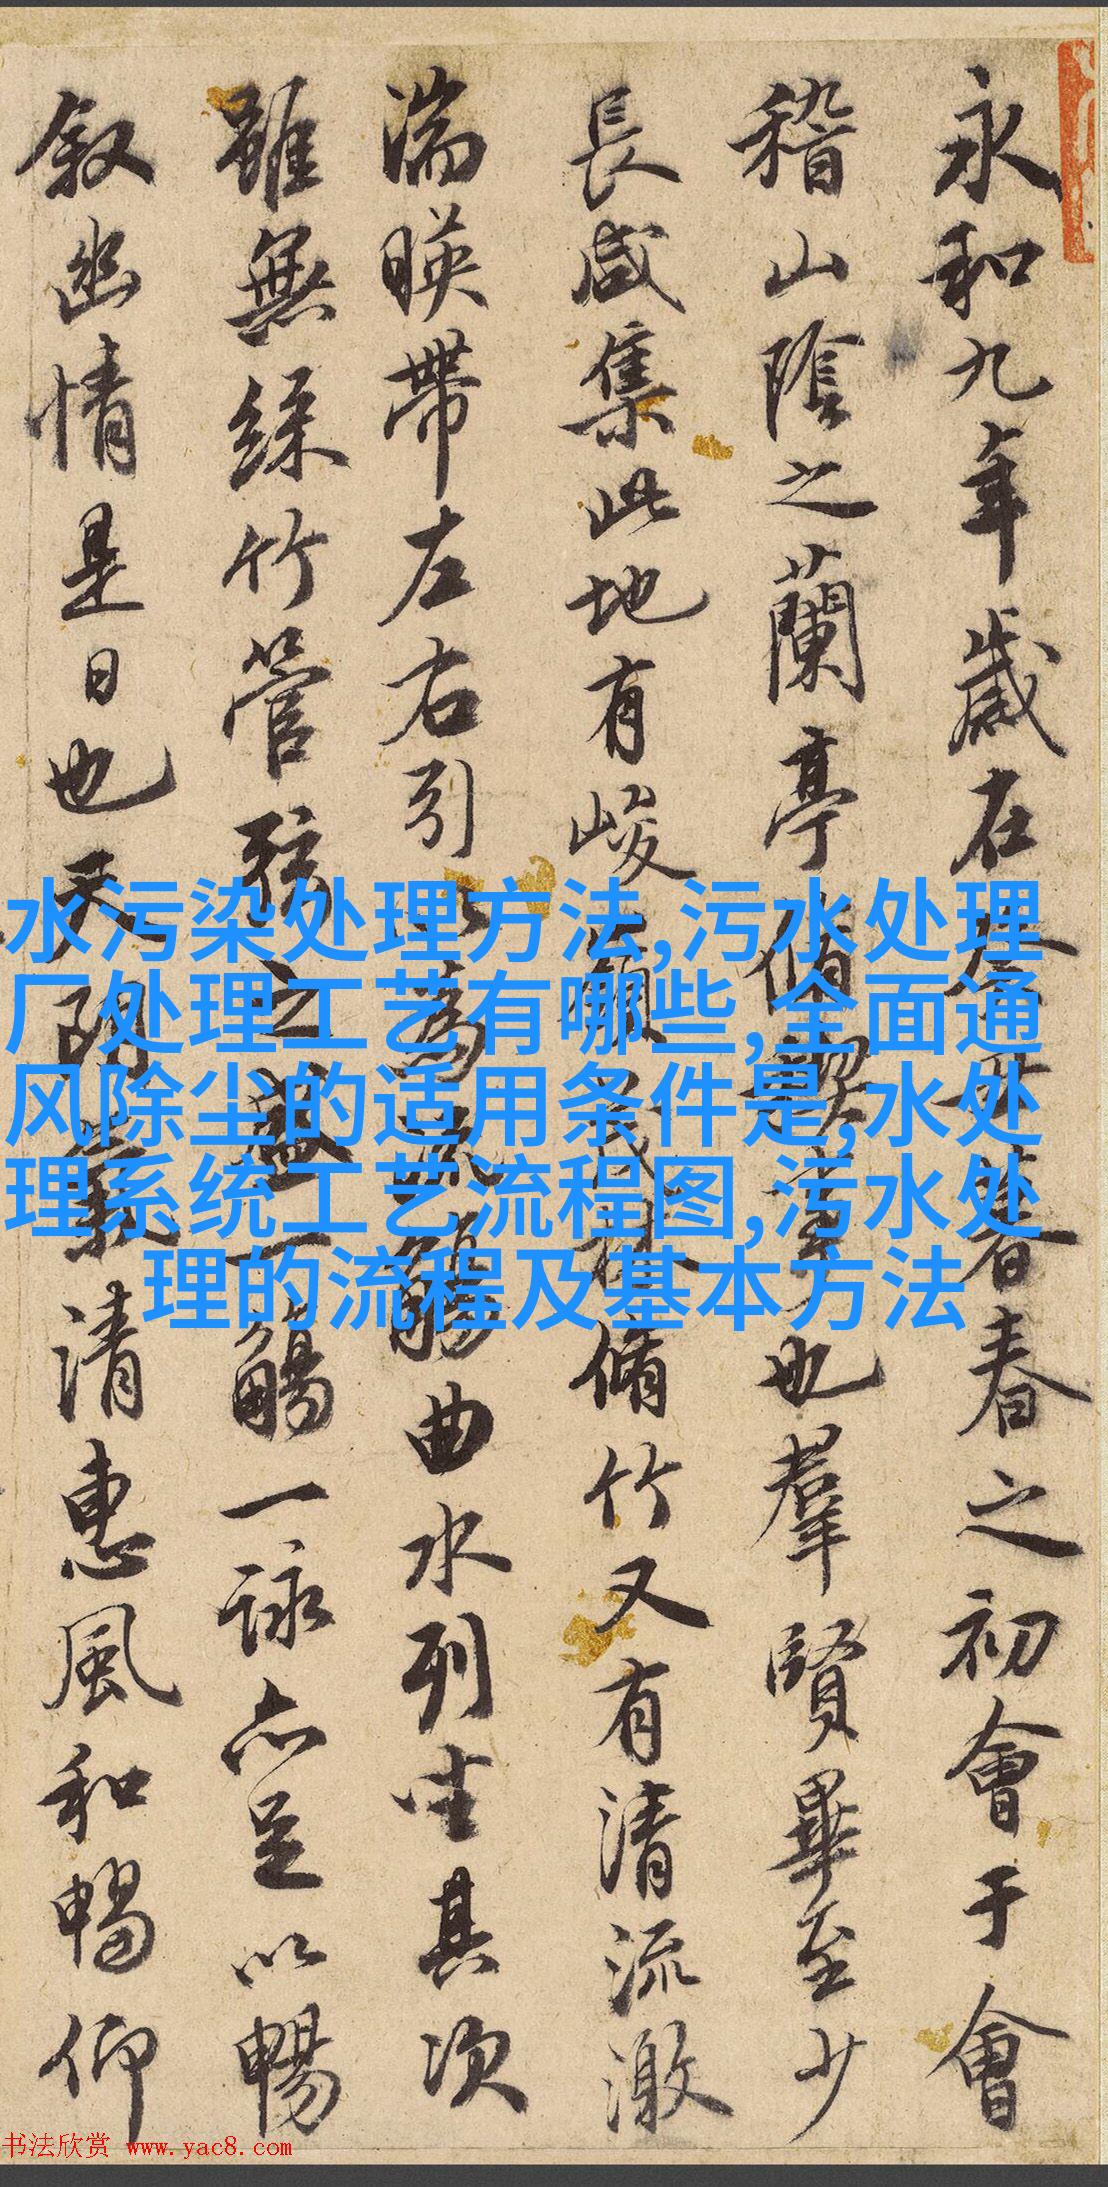 永和九年歲在癸丑暮春之初會于會
稽山陰之蘭亭脩禊事也羣賢畢至少
長咸集此地有峻領茂林脩竹又有清流激
湍暎帶左右引以為流觴曲水列坐其次
雖無絲竹管弦之盛一觴一詠亦足以暢
叙幽情是日也天朗氣清惠風和暢仰
水污染处理方法,污水处理
厂处理工艺有哪些,全面通
风除尘的适用条件是,水处
理系统工艺流程图,污水处
理的流程及基本方法
书法欣赏 www.yac8.com